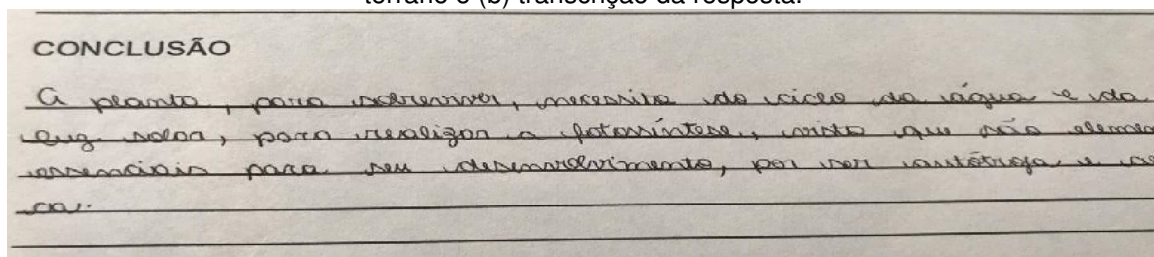 terrário e (b) transcrição da resposta.
CONCLUSÃO
A planta, para sobreviver, necessita do ciclo da água e da
luz solar, para realizar a fotossíntese, visto que são
essenciais para seu desenvolvimento, por ser autótrofa e